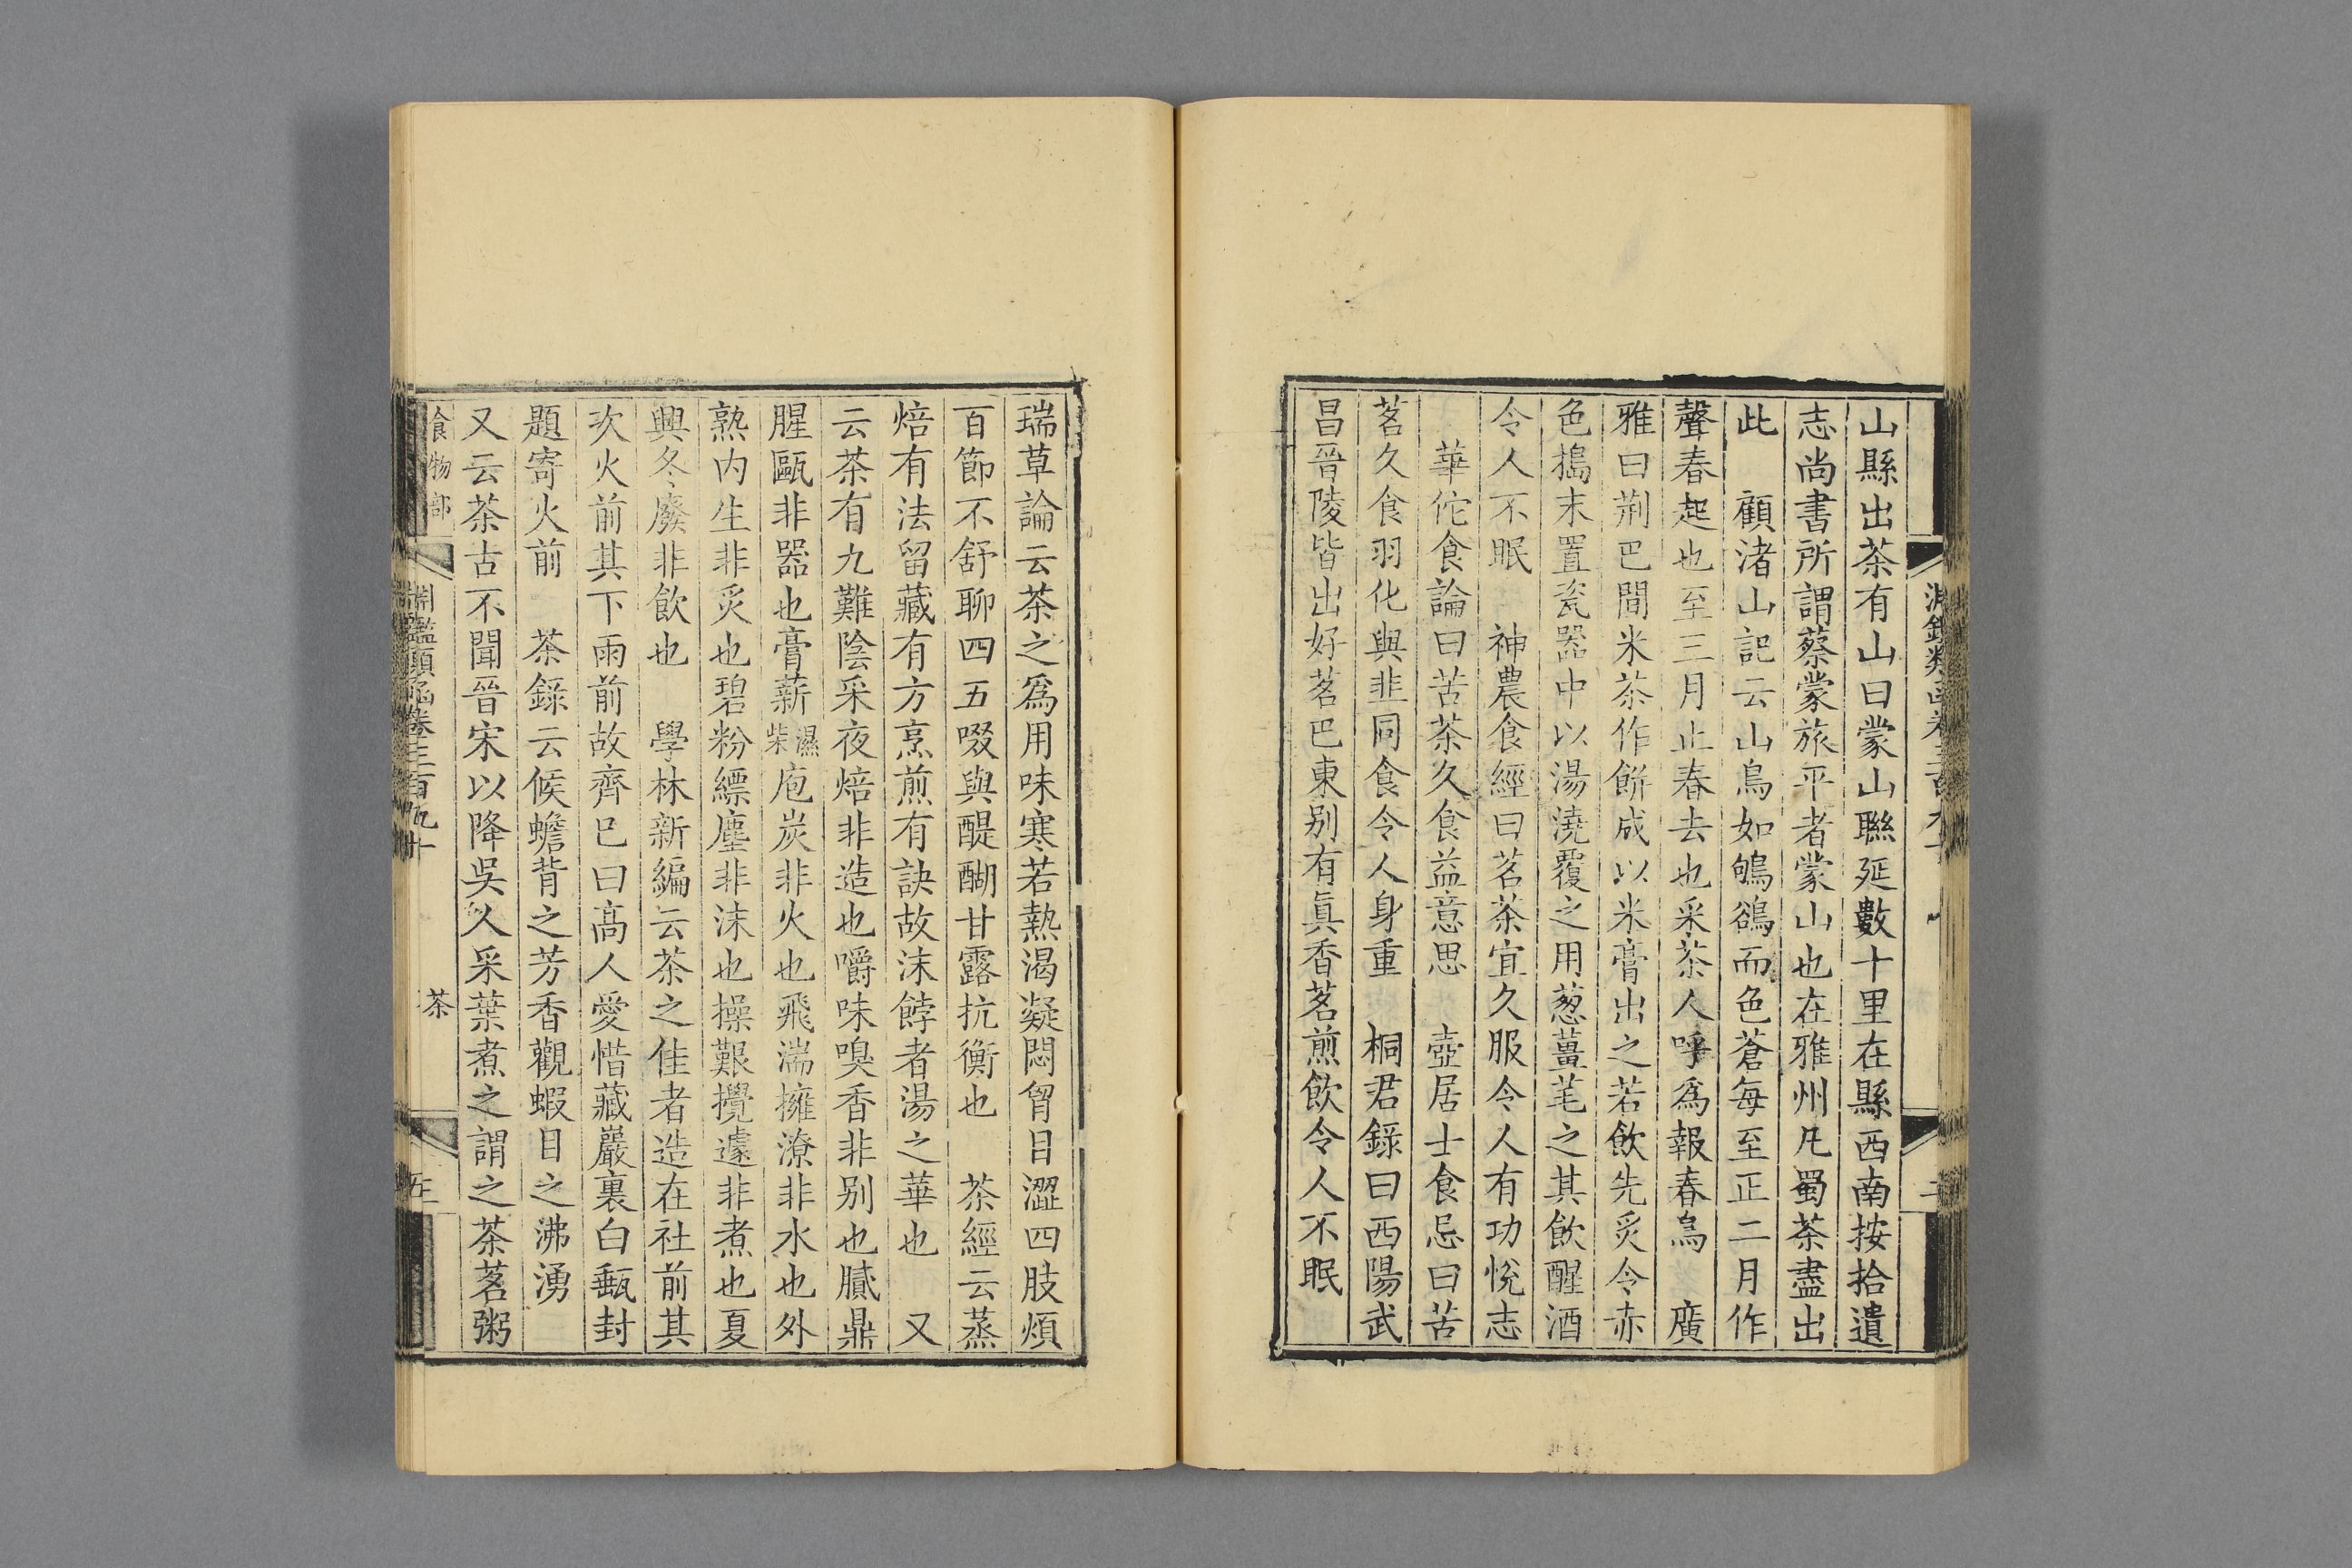 山縣出茶有山曰蒙山聯延數十里在縣西南按拾遺
志尚書所謂蔡蒙旅平者蒙山也在雅州凡蜀茶盡出
此　顧渚山記云山鳥如鴝鵒而色蒼每至正二月作
聲春起也至三月止春去也采茶人呼爲報春鳥　廣
雅曰荊巴間米茶作餅成以米膏出之若飲先炙令赤
色搗末置瓷器中以湯澆覆之用葱薑芼之其飲醒酒
令人不眠　神農食經曰茗茶宜久服令人有功悅志
華佗食論曰苦茶久食益意思　壺居士食忌曰苦
茗久食羽化與韭同食令人身重　桐君錄曰西陽武
昌晉陵皆出好茗巴東别有眞香茗煎飲令人不眠
瑞草論云茶之爲用味寒若熱渴凝悶胷目澀四肢煩
百節不舒聊四五啜與醍醐甘露抗衡也　茶經云蒸
焙有法留藏有方烹煎有訣故沫餑者湯之華也　又
云茶有九難陰采夜焙非造也嚼味嗅香非别也膩鼎
腥甌非器也膏薪濕柴庖炭非火也飛湍擁潦非水也外
熟内生非炙也碧粉縹塵非沫也操艱攪遽非煮也夏
興冬廢非飲也　學林新編云茶之佳者造在社前其
次火前其下雨前故齊己曰高人愛惜藏巖裏白甀封
題寄火前　茶錄云候蟾背之芳香觀蝦目之沸湧
又云茶古不聞晉宋以降吳人采葉煮之謂之茶茗粥
食物部　淵鑑類函卷三百九十　茶　五